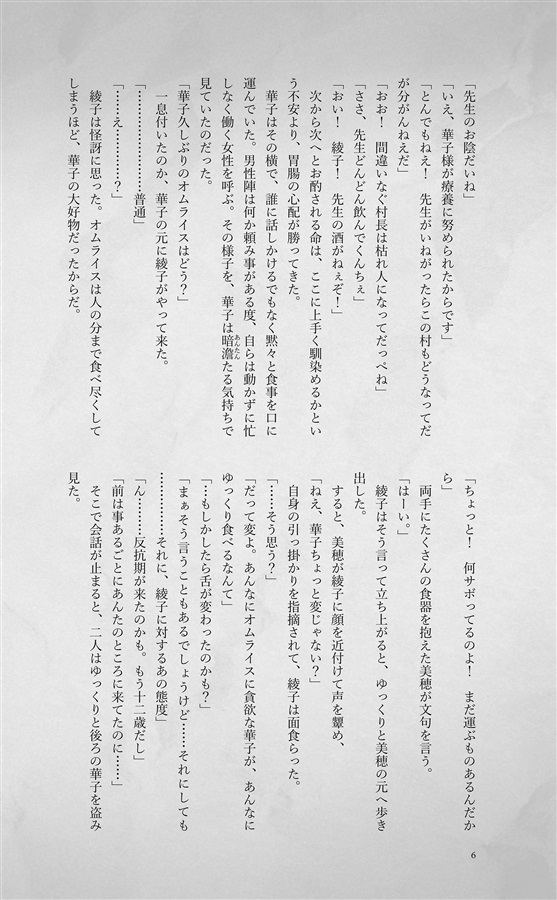 「先生のお陰だいね」
「いえ、華子様が療養に努められたからです」
「とんでもねえ！　先生がいねがったらこの村もどうなってだ
が分がんねえだ」
「おお！　間違いなぐ村長は枯れ人になってだっぺね」
「ささ、先生どんどん飲んでくんちぇ」
「おい！　綾子！　先生の酒がねぇぞ！」
　次から次へとお酌される命は、ここに上手く馴染めるかとい
う不安より、胃腸の心配が勝ってきた。
　華子はその横で、誰に話しかけるでもなく黙々と食事を口に
運んでいた。男性陣は何か頼み事がある度、自らは動かずに忙
しなく働く女性を呼ぶ。その様子を、華子は暗澹たる気持ちで
あんたん
見ていたのだった。
「華子久しぶりのオムライスはどう？」
　一息付いたのか、華子の元に綾子がやって来た。
「……………普通」
「……え…………？」
　綾子は怪訝に思った。オムライスは人の分まで食べ尽くして
しまうほど、華子の大好物だったからだ。
「ちょっと！　何サボってるのよ！　まだ運ぶものあるんだか
ら」
　両手にたくさんの食器を抱えた美穂が文句を言う。
「はーい。」
　綾子はそう言って立ち上がると、ゆっくりと美穂の元へ歩き
出した。
　すると、美穂が綾子に顔を近付けて声を顰め、
「ねえ、華子ちょっと変じゃない？」
　自身の引っ掛かりを指摘されて、綾子は面食らった。
「……そう思う？」
「だって変よ。あんなにオムライスに貪欲な華子が、あんなに
ゆっくり食べるなんて」
「…もしかしたら舌が変わったのかも？」
「まぁそう言うこともあるでしょうけど……それにしても
……………それに、綾子に対するあの態度」
「ん………反抗期が来たのかも。もう十二歳だし」
「前は事あるごとにあんたのところに来てたのに……」
　そこで会話が止まると、二人はゆっくりと後ろの華子を盗み
見た。
6